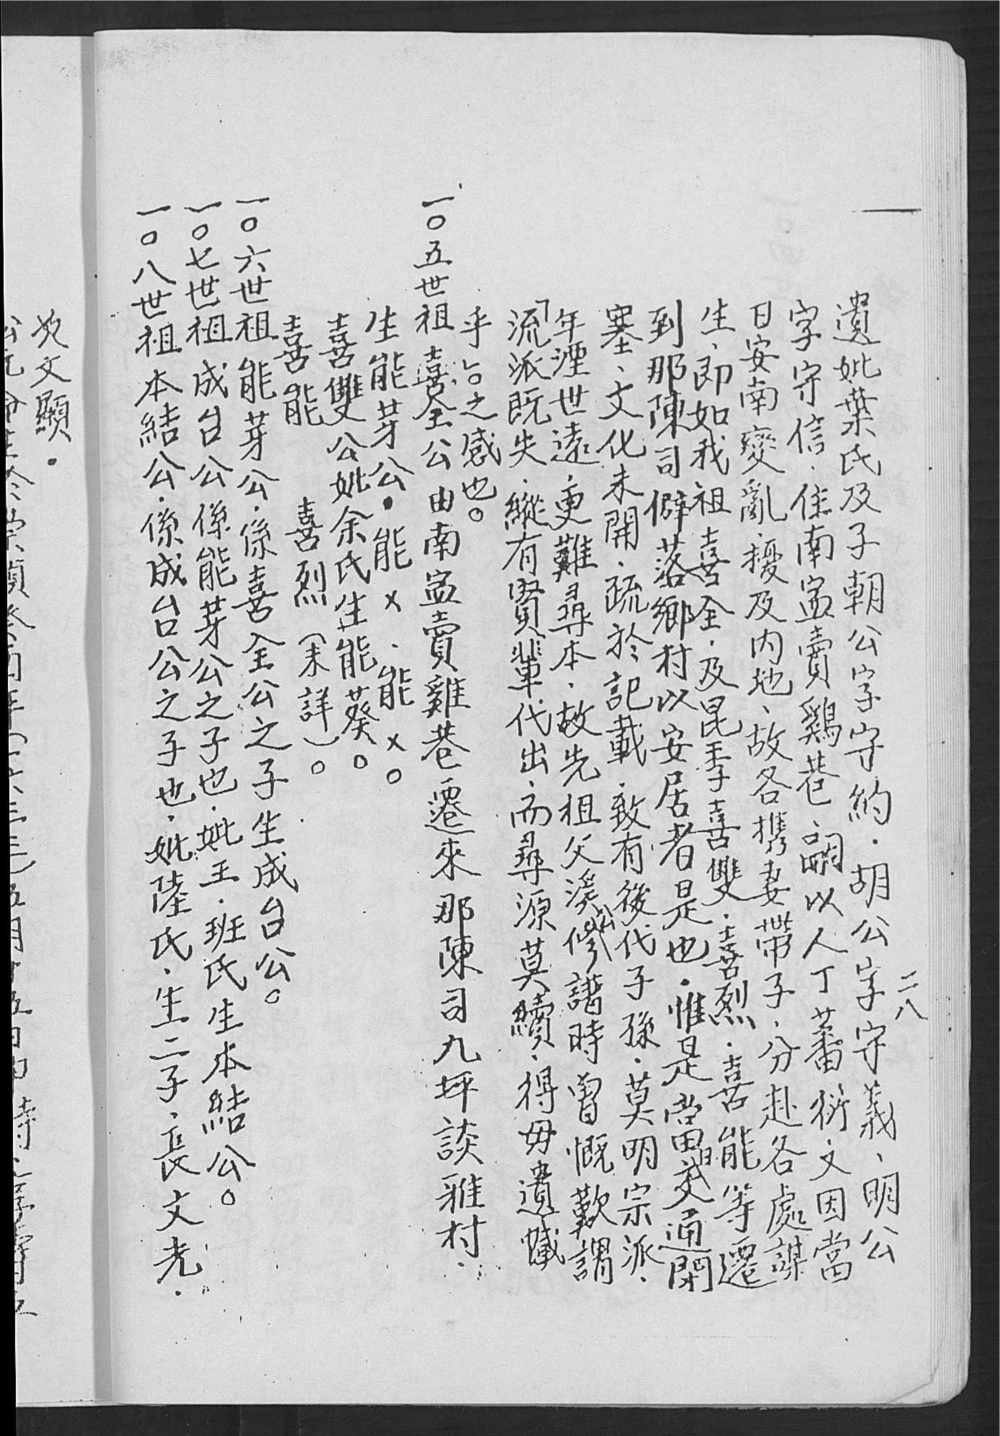 二八
遺妣葉氏及子朝公字守約．胡公字守義、明公
字守信．住南寍賣鷄巷．嗣以人丁蕃衍．又因當
日安南變亂．擾及内地、故各携妻帶子．分赴各處謀
生、即如我祖喜全．及昆季喜雙．喜烈．喜能等遷
到那陳司僻落鄉村以安居者是也．惟是當日交通閉
塞、文化未開．疏於記載．致有後代子孫．莫明宗派．
年湮世遠．更難尋本．故先祖父溪公修譜時曾慨歎謂
「流派既失．縱有賢輩代出．而尋源莫續．得毋遺憾
乎」云之感也。
一〇五世祖 喜全公由南寍賣雞巷遷來那陳司九坪談雅村．
生能芽公．能×．能×。
喜雙公妣余氏生能葵。
喜能 喜烈（未詳）。
一〇六世祖 能芽公．係喜全公之子生成台公。
一〇七世祖 成台公係能芽公之子也．妣王．班氏生本結公。
一〇八世祖 本結公．係成台公之子也．妣陸氏．生二子、長文光．
次文顯．